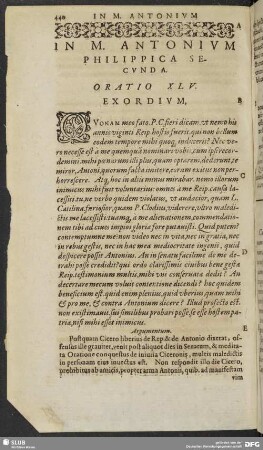 440 IN M. ANTONIVM
IN M. ANTONIVM
PHILIPPICA SE-
CVNDA.
ORATIO XLV.
EXORDIVM,
QVONAM meo fato, P.C. fieri dicam, vt nemo his
annis viginti Reip. hostis fuerit, qui non bellum
eodem tempore mihi quoq; indixerit? Nec ve-
ro necesse est à me quenquā nominari vobis, cum ipsi recor-
demini. mihi pœnarum illi plus, quàm optarem, dederunt, te
miror, Antoni, quorum facta imitere, eorum exitus non per-
horrescere. Atq; hoc in aliis minus mirabar. nemo illorum
inimicus mihi fuit voluntarius: omnes à me Reip. causa
lacessiti. tu, ne verbo quidem violatus, vt audacior, quàm L.
Catilina, furiosior, quàm P. Clodius, viderere, vltro maledi-
ctis me lacessisti. tuamq́; à me alienationem, commendatio-
nem tibi ad ciues impios fore putauisti. Quid putem?
contemptumne me? non video nec in vita, nec in gratia, nec
in rebus gestis, nec in hac mea mediocritate ingenii, quid
despicere possit Antonius. An in senatu facillime de me de-
trahi posse credidit? qui ordo clarissimis ciuibus bene gestæ
Reip. testimonium multis, mihi vni conseruatæ dedit? An
decertare mecum voluit contentione dicendi? hoc quidem
beneficium est. quid enim plenius, quid vberius, quàm mihi
& pro me, & contra Antonium dicere? Illud profectò est.
non existimauit, sui similibus probari posse, se esse hostem pa-
triæ, nisi mihi esset inimicus.
Argumentum.
Postquam Cicero liberius de Rep. & de Antonio dixerat, of-
fensus ille grauiter, venit post aliquot dies in Senatum, & medita-
ta Oratione conquestus de iniuria Ciceronis, multis maledictis
in personam eius inuectus est. Non respondit illo die Cicero,
prohibitus ab amicis, propter arma Antonii, quib. ad manifestam
vim
SLUB